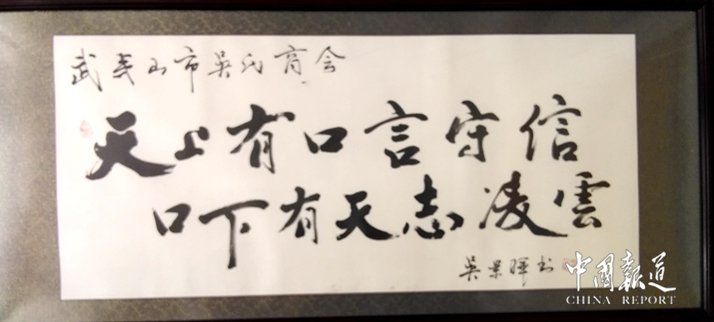 武夷山市吳氏商会
天上有口言守信
口下有天志凌雲
吳景暉书
中国报道
CHINA REPORT